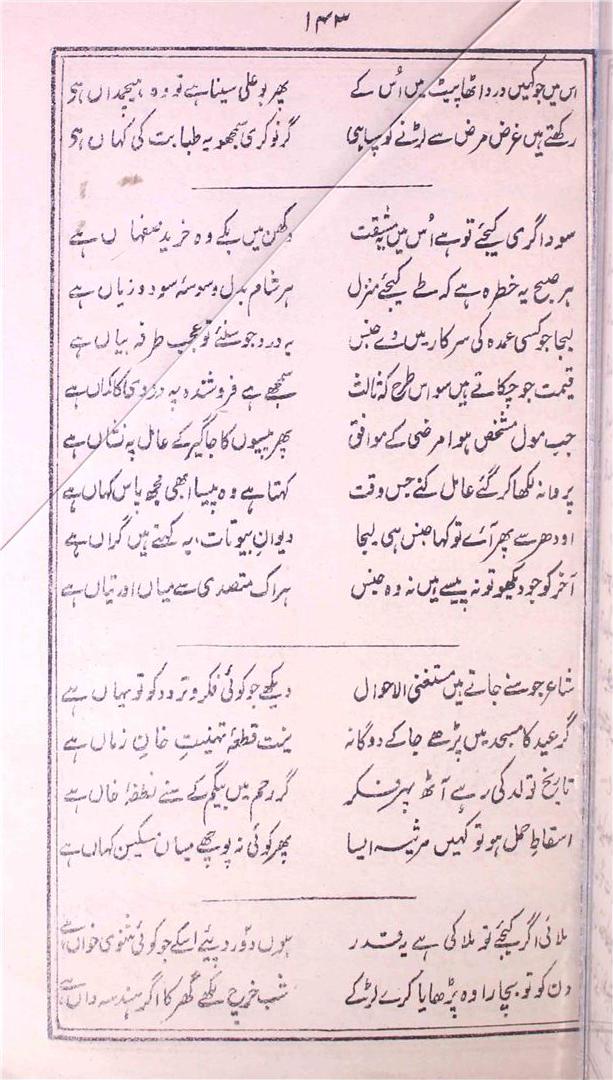 ۱۴۳
اس میں جو کہیں درد اٹھا پیٹ میں اُس کے پھر بو علی سینا ہے تو وہ ہیچمداں ہی
رکھتے ہیں غرض مرض سے لڑنے کو سپاہی گر نوکری سمجھو یہ طبابت کی کہاں ہی
سوداگری کیجئے تو ہے اُس میں یہ مشقت دکھن میں بکے وہ خرید صفہاں ہے
ہر صبح یہ خطرہ ہے کہ طے کیجئے منزل ہر شام بدل وسوسۂ سود و زیاں ہے
لیجا جو کسی عمدہ کی سرکار میں دے جنس یہ درد جو سنئے تو عجب طرفہ بیاں ہے
قیمت جو چکاتے ہیں سو اس طرح کہ ثالث سمجھے ہے فروشندہ پہ دزدی کا گماں ہے
جب مول مشخص ہوا مرضی کے موافق پھر پیسوں کا جاگیر کے عامل پہ نشاں ہے
پروانہ لکھا کر گئے عامل کنے جس وقت کہتا ہے وہ پیسا ابھی مجھ پاس کہاں ہے
اودھر سے پھر آئے تو کہا جنس ہی لیجا دیوان بیوتات، یہ کہتے ہیں گراں ہے
آخر کو جو دیکھو تو نہ پیسے ہیں نہ وہ جنس ہر اک متصدی سے میاں اور تیاں ہے
شاعر جو سنے جاتے ہیں مستغنی الاحوال دیکھے جو کوئی فکر و تردد کو تو یہاں ہے
گر عید کا مسجد میں پڑھے جا کے دوگانہ نیت قطعۂ تہنیتِ خانِ زماں ہے
تاریخ تولد کی رہے آٹھ پہر فکر گر رحم میں بیگم کے سنے نطفۂ خاں ہے
اسقاطِ حمل ہو تو کہیں مرثیہ ایسا پھر کوئی نہ پوچھے میاں مسکین کہاں ہے
ملائی اگر کیجئے تو ملا کی ہے یہ قدر ہوں دو روپئے اسکے جو کوئی مثنوی خواں ہے
دن کو تو بچارا وہ پڑھایا کرے لڑکے شب خرچ لکھے گھر کا اگر ہندسہ داں ہے